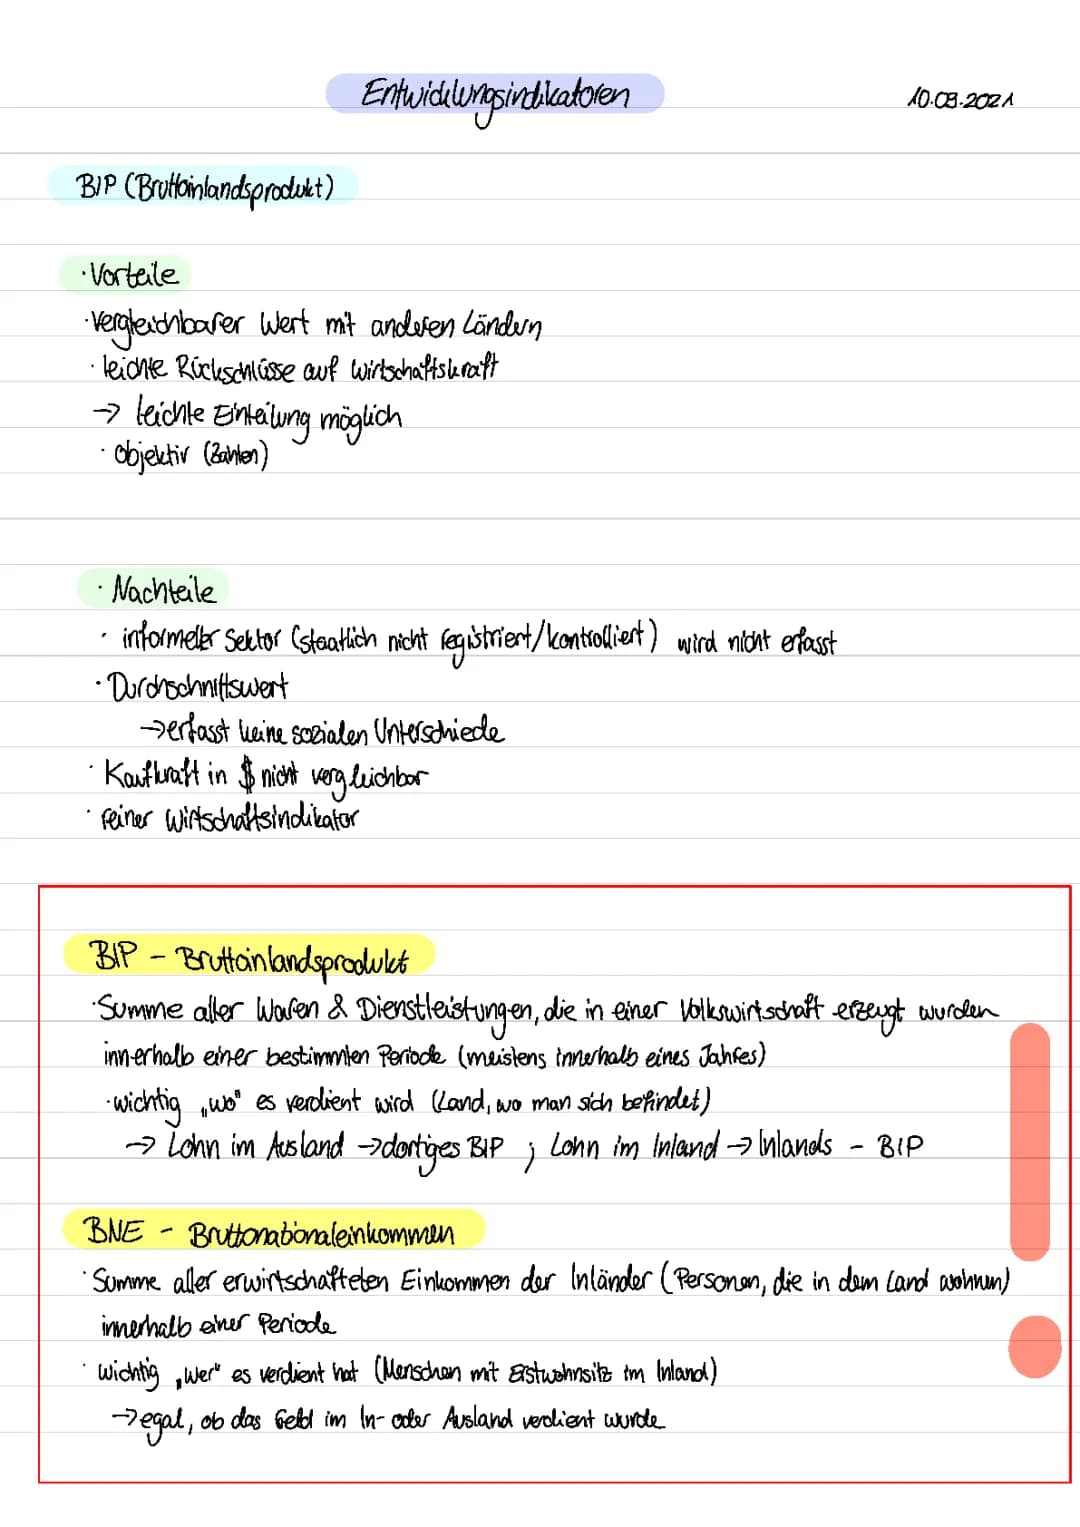 Entwicklungsindikatoren
10.09.2021
BIP (Bruttoinlandsprodukt)
· Vorteile
· vergleichbarer Wert mit anderen Ländern
· leichte Rückschlüsse auf Wirtschaftskraft
→ leichte Einteilung möglich
· objektiv (Zahlen)
· Nachteile
· informeller Sektor (staatlich nicht registriert/kontrolliert) wird nicht erfasst
· Durchschnittswert
→ erfasst keine sozialen Unterschiede
· Kaufkraft in $ nicht vergleichbar
· reiner Wirtschaftsindikator
BIP - Bruttoinlandsprodukt
· Summe aller Waren & Dienstleistungen, die in einer Volkswirtschaft erzeugt wurden
innerhalb einer bestimmten Periode (meistens innerhalb eines Jahres)
· wichtig „wo" es verdient wird (Land, wo man sich befindet)
→ Lohn im Ausland → dortiges BIP ; Lohn im Inland → Inlands - BIP
BNE - Bruttonationaleinkommen
· Summe aller erwirtschafteten Einkommen der Inländer (Personen, die in dem Land wohnen)
innerhalb einer Periode
· wichtig „wer" es verdient hat (Menschen mit Erstwohnsitz im Inland)
→ egal, ob das Geld im In- oder Ausland verdient wurde